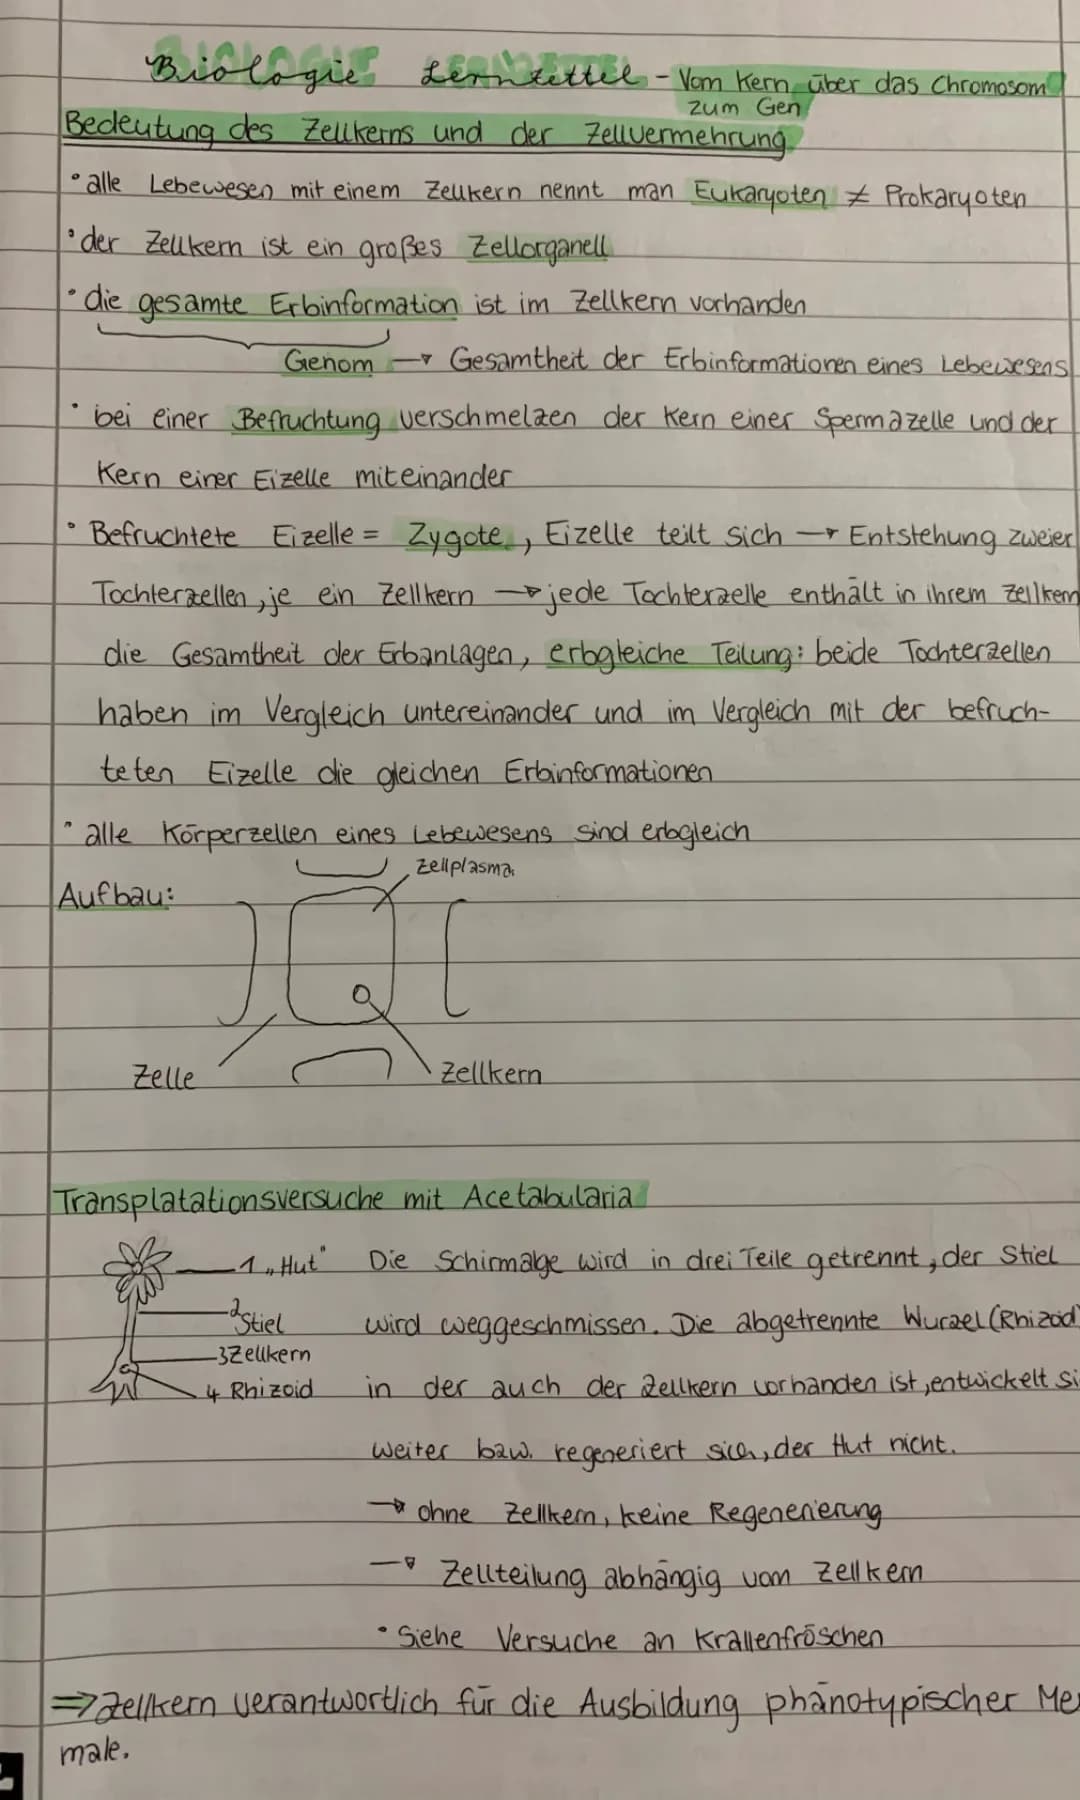 Biologie Lernzettel - Vom Kern über das Chromosom
zum Gen
Bedeutung des Zellkerns und der Zellvermehrung
• alle Lebewesen mit einem Zellkern nennt man Eukaryoten ≠ Prokaryoten
• der Zellkern ist ein großes Zellorganell
• die gesamte Erbinformation ist im Zellkern vorhanden
Genom → Gesamtheit der Erbinformationen eines Lebewesens
• bei einer Befruchtung verschmelzen der Kern einer Spermazelle und der
Kern einer Eizelle miteinander
• Befruchtete Eizelle = Zygote, Eizelle teilt sich → Entstehung zweier
Tochterzellen, je ein Zellkern → jede Tochterzelle enthält in ihrem Zellkern
die Gesamtheit der Erbanlagen, erbgleiche Teilung: beide Tochterzellen
haben im Vergleich untereinander und im Vergleich mit der befruch-
teten Eizelle die gleichen Erbinformationen
• alle Körperzellen eines Lebewesens sind erbgleich
Zellplasma
Aufbau:
Zelle
Zellkern
Transplatationsversuche mit Acetabularia
1 „Hut" Die Schirmalge wird in drei Teile getrennt, der Stiel
2 Stiel wird weggeschmissen. Die abgetrennte Wurzel (Rhizoid)
3 Zellkern
4 Rhizoid in der auch der Zellkern vorhanden ist, entwickelt si
weiter bzw. regeneriert sich, der Hut nicht.
→ ohne Zellkern, keine Regenerierung
→ Zellteilung abhängig vom Zellkern
• Siehe Versuche an Krallenfröschen
⇒ Zellkern verantwortlich für die Ausbildung phänotypischer Me
male.